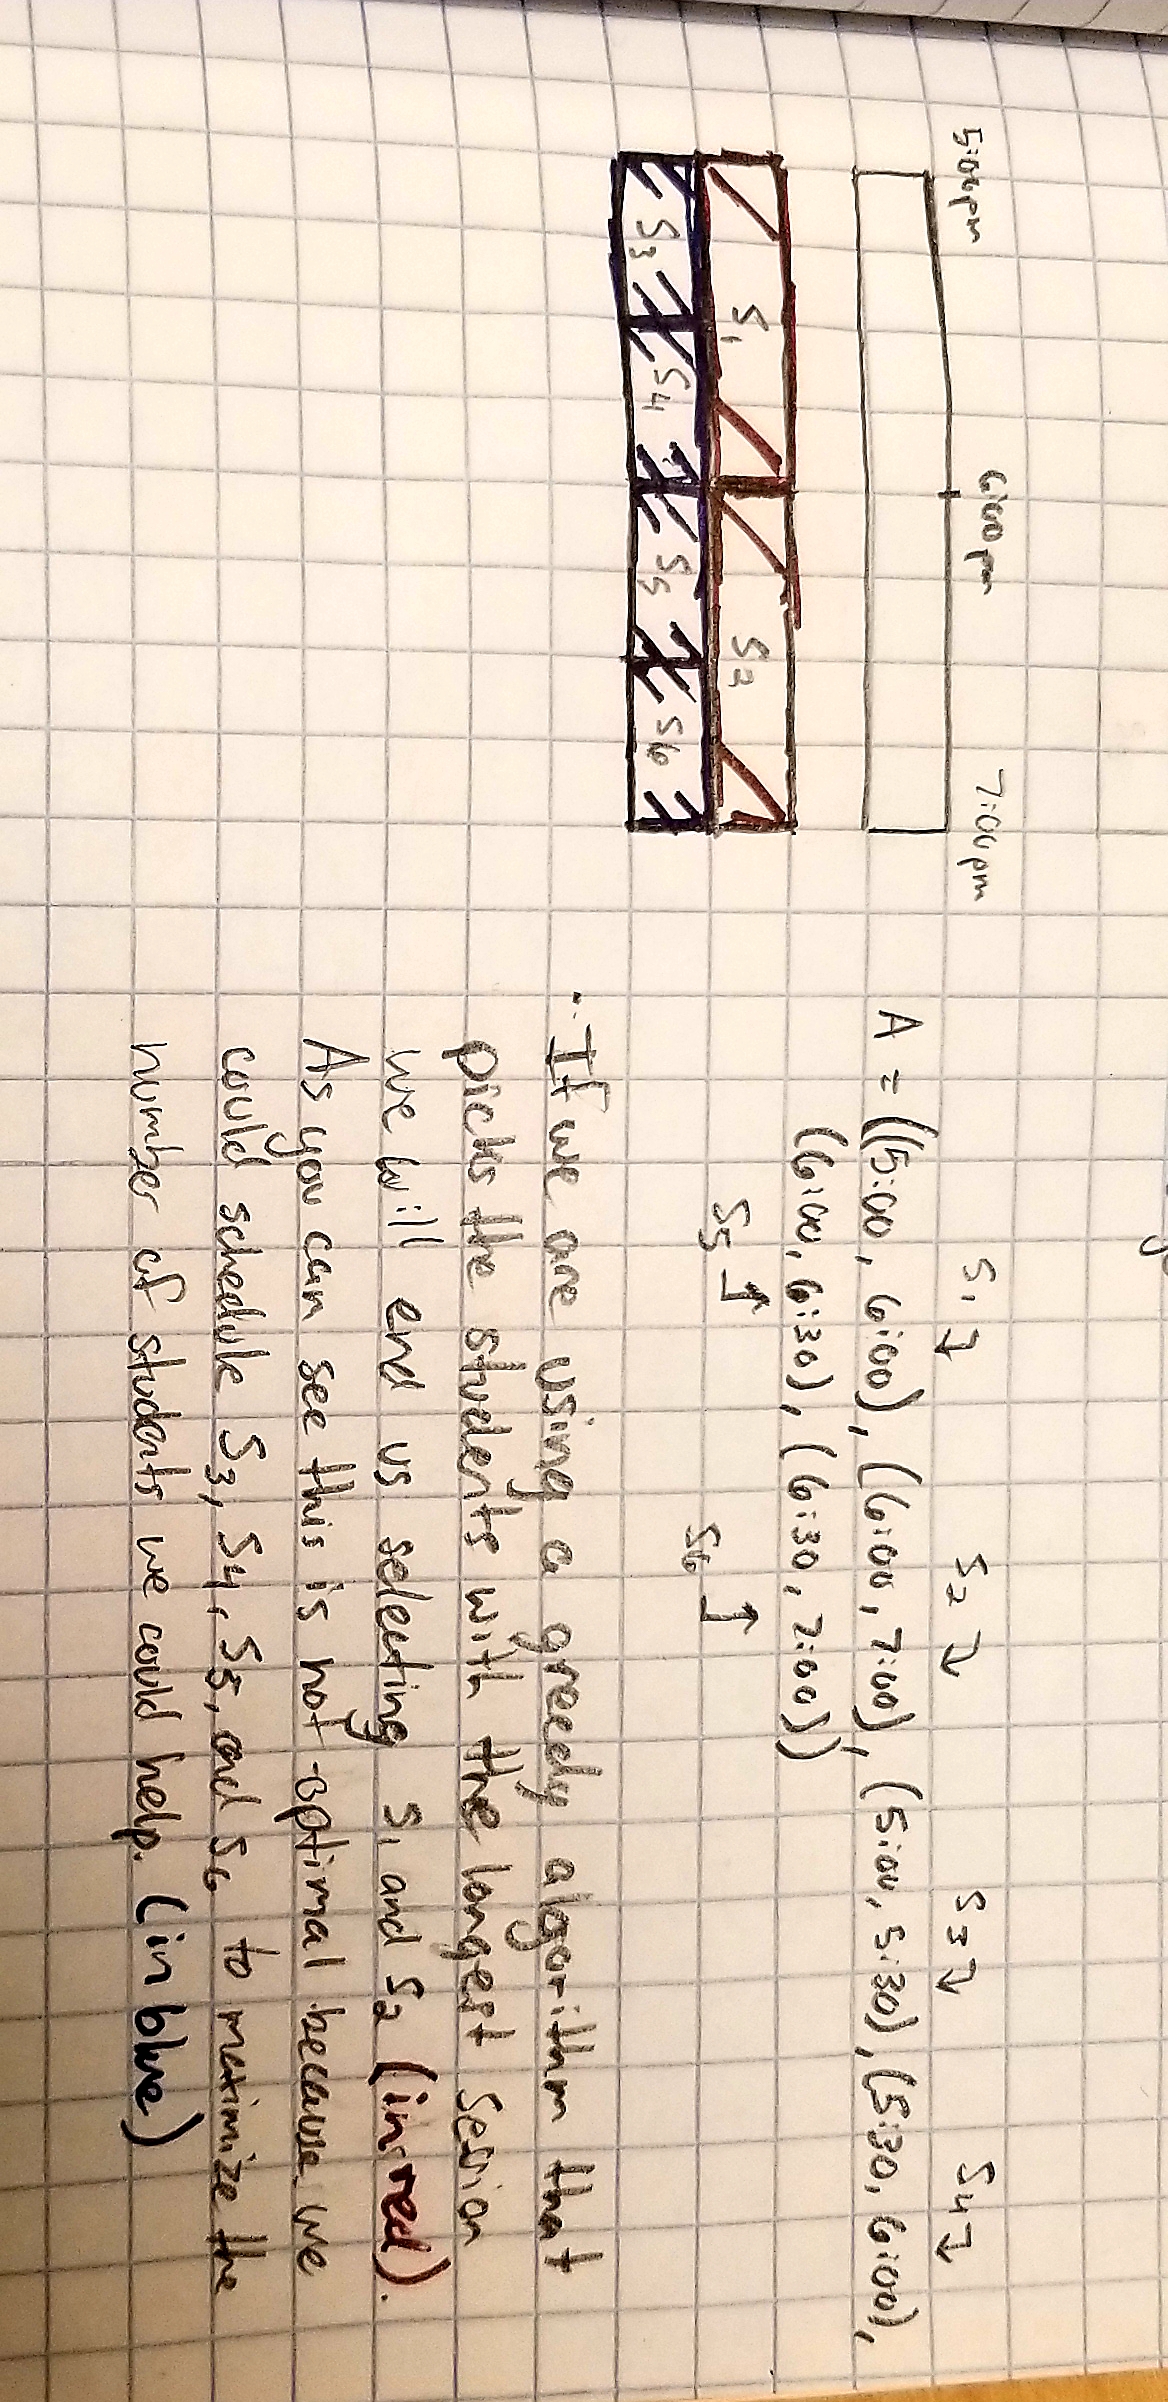 5:00pm 6:00pm 7:00pm
S1 S2
S3 S4 S5 S6
S1 ↴ S2 ↴ S3 ↴ S4 ↴
A = ((5:00, 6:00), (6:00, 7:00), (5:00, 5:30), (5:30, 6:00),
(6:00, 6:30), (6:30, 7:00))
S5 S6
· If we are using a greedy algorithm that
picks the students with the longest session
we will end us selecting S1 and S2 (in red).
As you can see this is not optimal because we
could schedule S3, S4, S5, and S6 to maximize the
number of students we could help. (in blue)